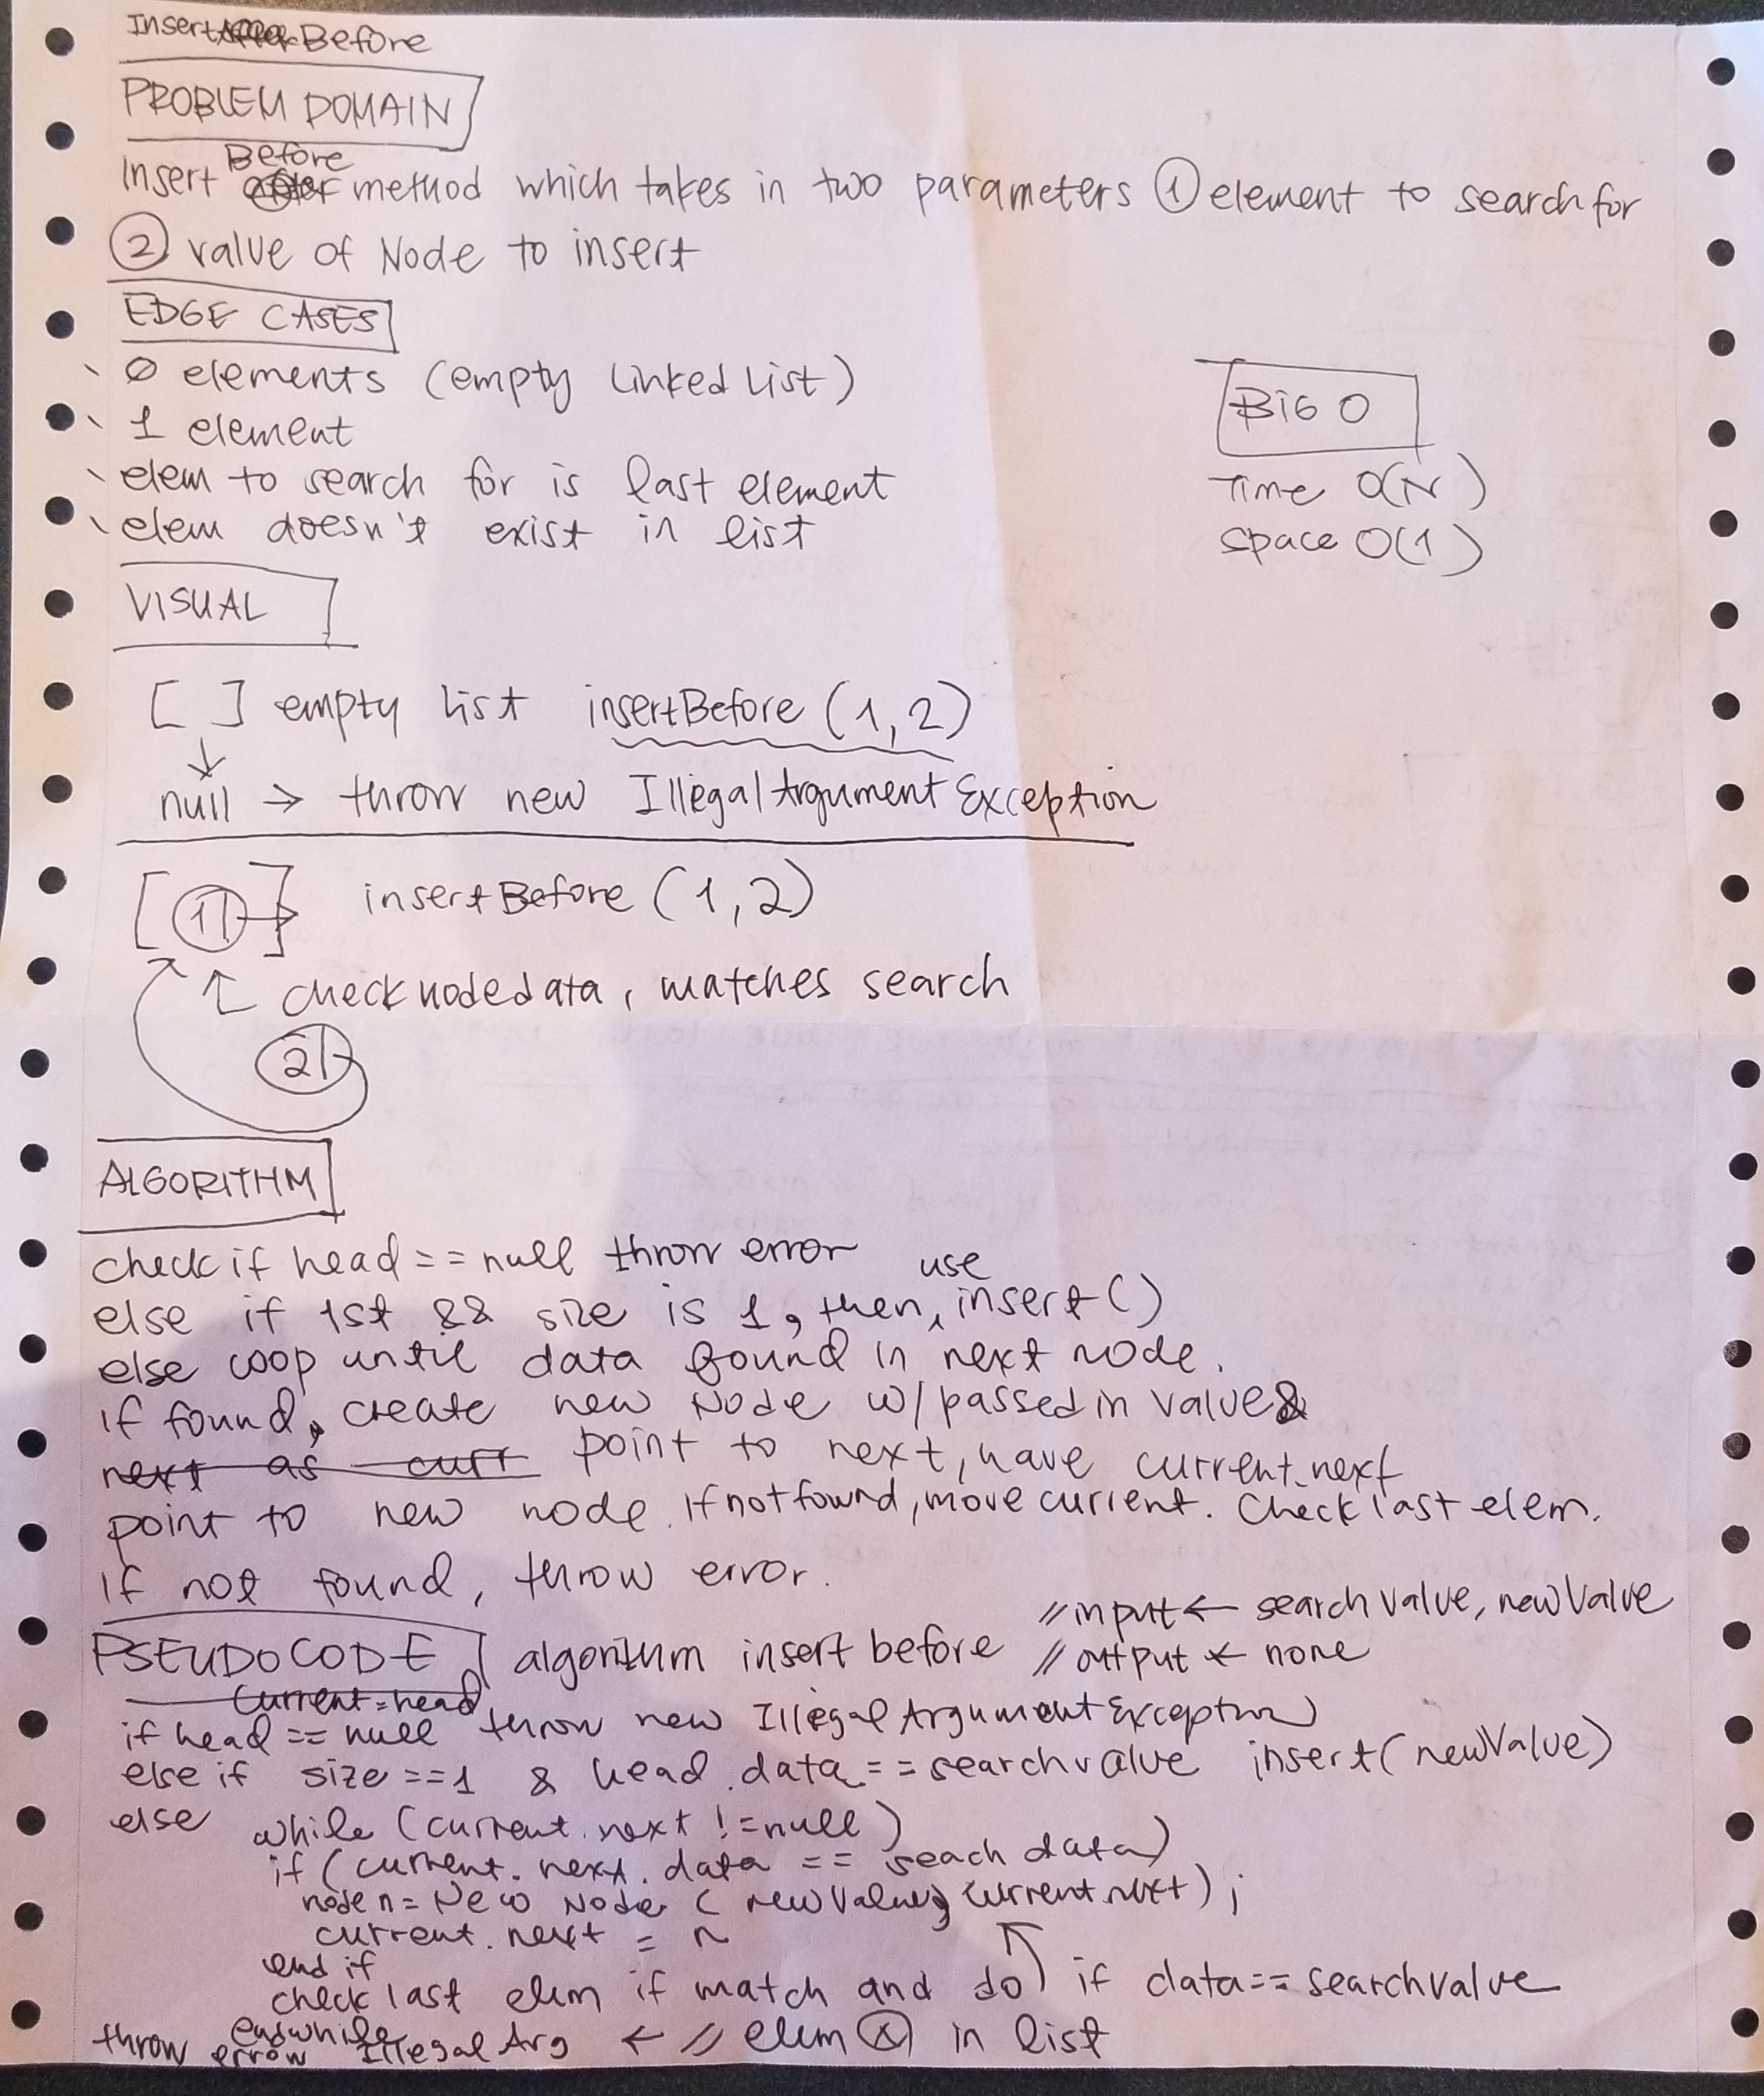 Insert Before
PROBLEM DOMAIN
Insert Before method which takes in two parameters ① element to search for
② value of Node to insert
EDGE CASES
0 elements (empty Linked List)
1 element
elem to search for is last element
elem doesn't exist in list
BIG O
Time O(N)
Space O(1)
VISUAL
[ ] empty list insertBefore (1,2)
↓
null → throw new IllegalArgumentException
[①→] insertBefore (1,2)
check node data, matches search
②
ALGORITHM
check if head == null throw error
else if 1st && size is 1, then use insert()
else loop until data found in next node.
if found, create new Node w/ passed in value &
next as curr point to next, have current.next
point to new node. If not found, move current. Check last elem.
if not found, throw error.
PSEUDOCODE algorithm insert before // input ← search value, newValue
// output ← none
current = head
if head == null throw new IllegalArgumentException
else if size ==1 & head.data == searchvalue insert(newValue)
else while (current.next != null)
if (current.next.data == seach data)
node n = New Node (newValue, current.next);
current.next = n
end if
check last elem if match and do ↑ if data == searchvalue
endwhile
throw error Illegal Arg ← // elem ⓧ in list